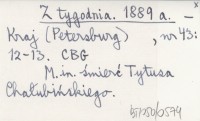 Z tygodnia. 1889 a. —
Kraj (Petersburg) , nr 43:
12-13. CBG
M.in. śmierć Tytusa
Chałubińskiego.
57/250/0594